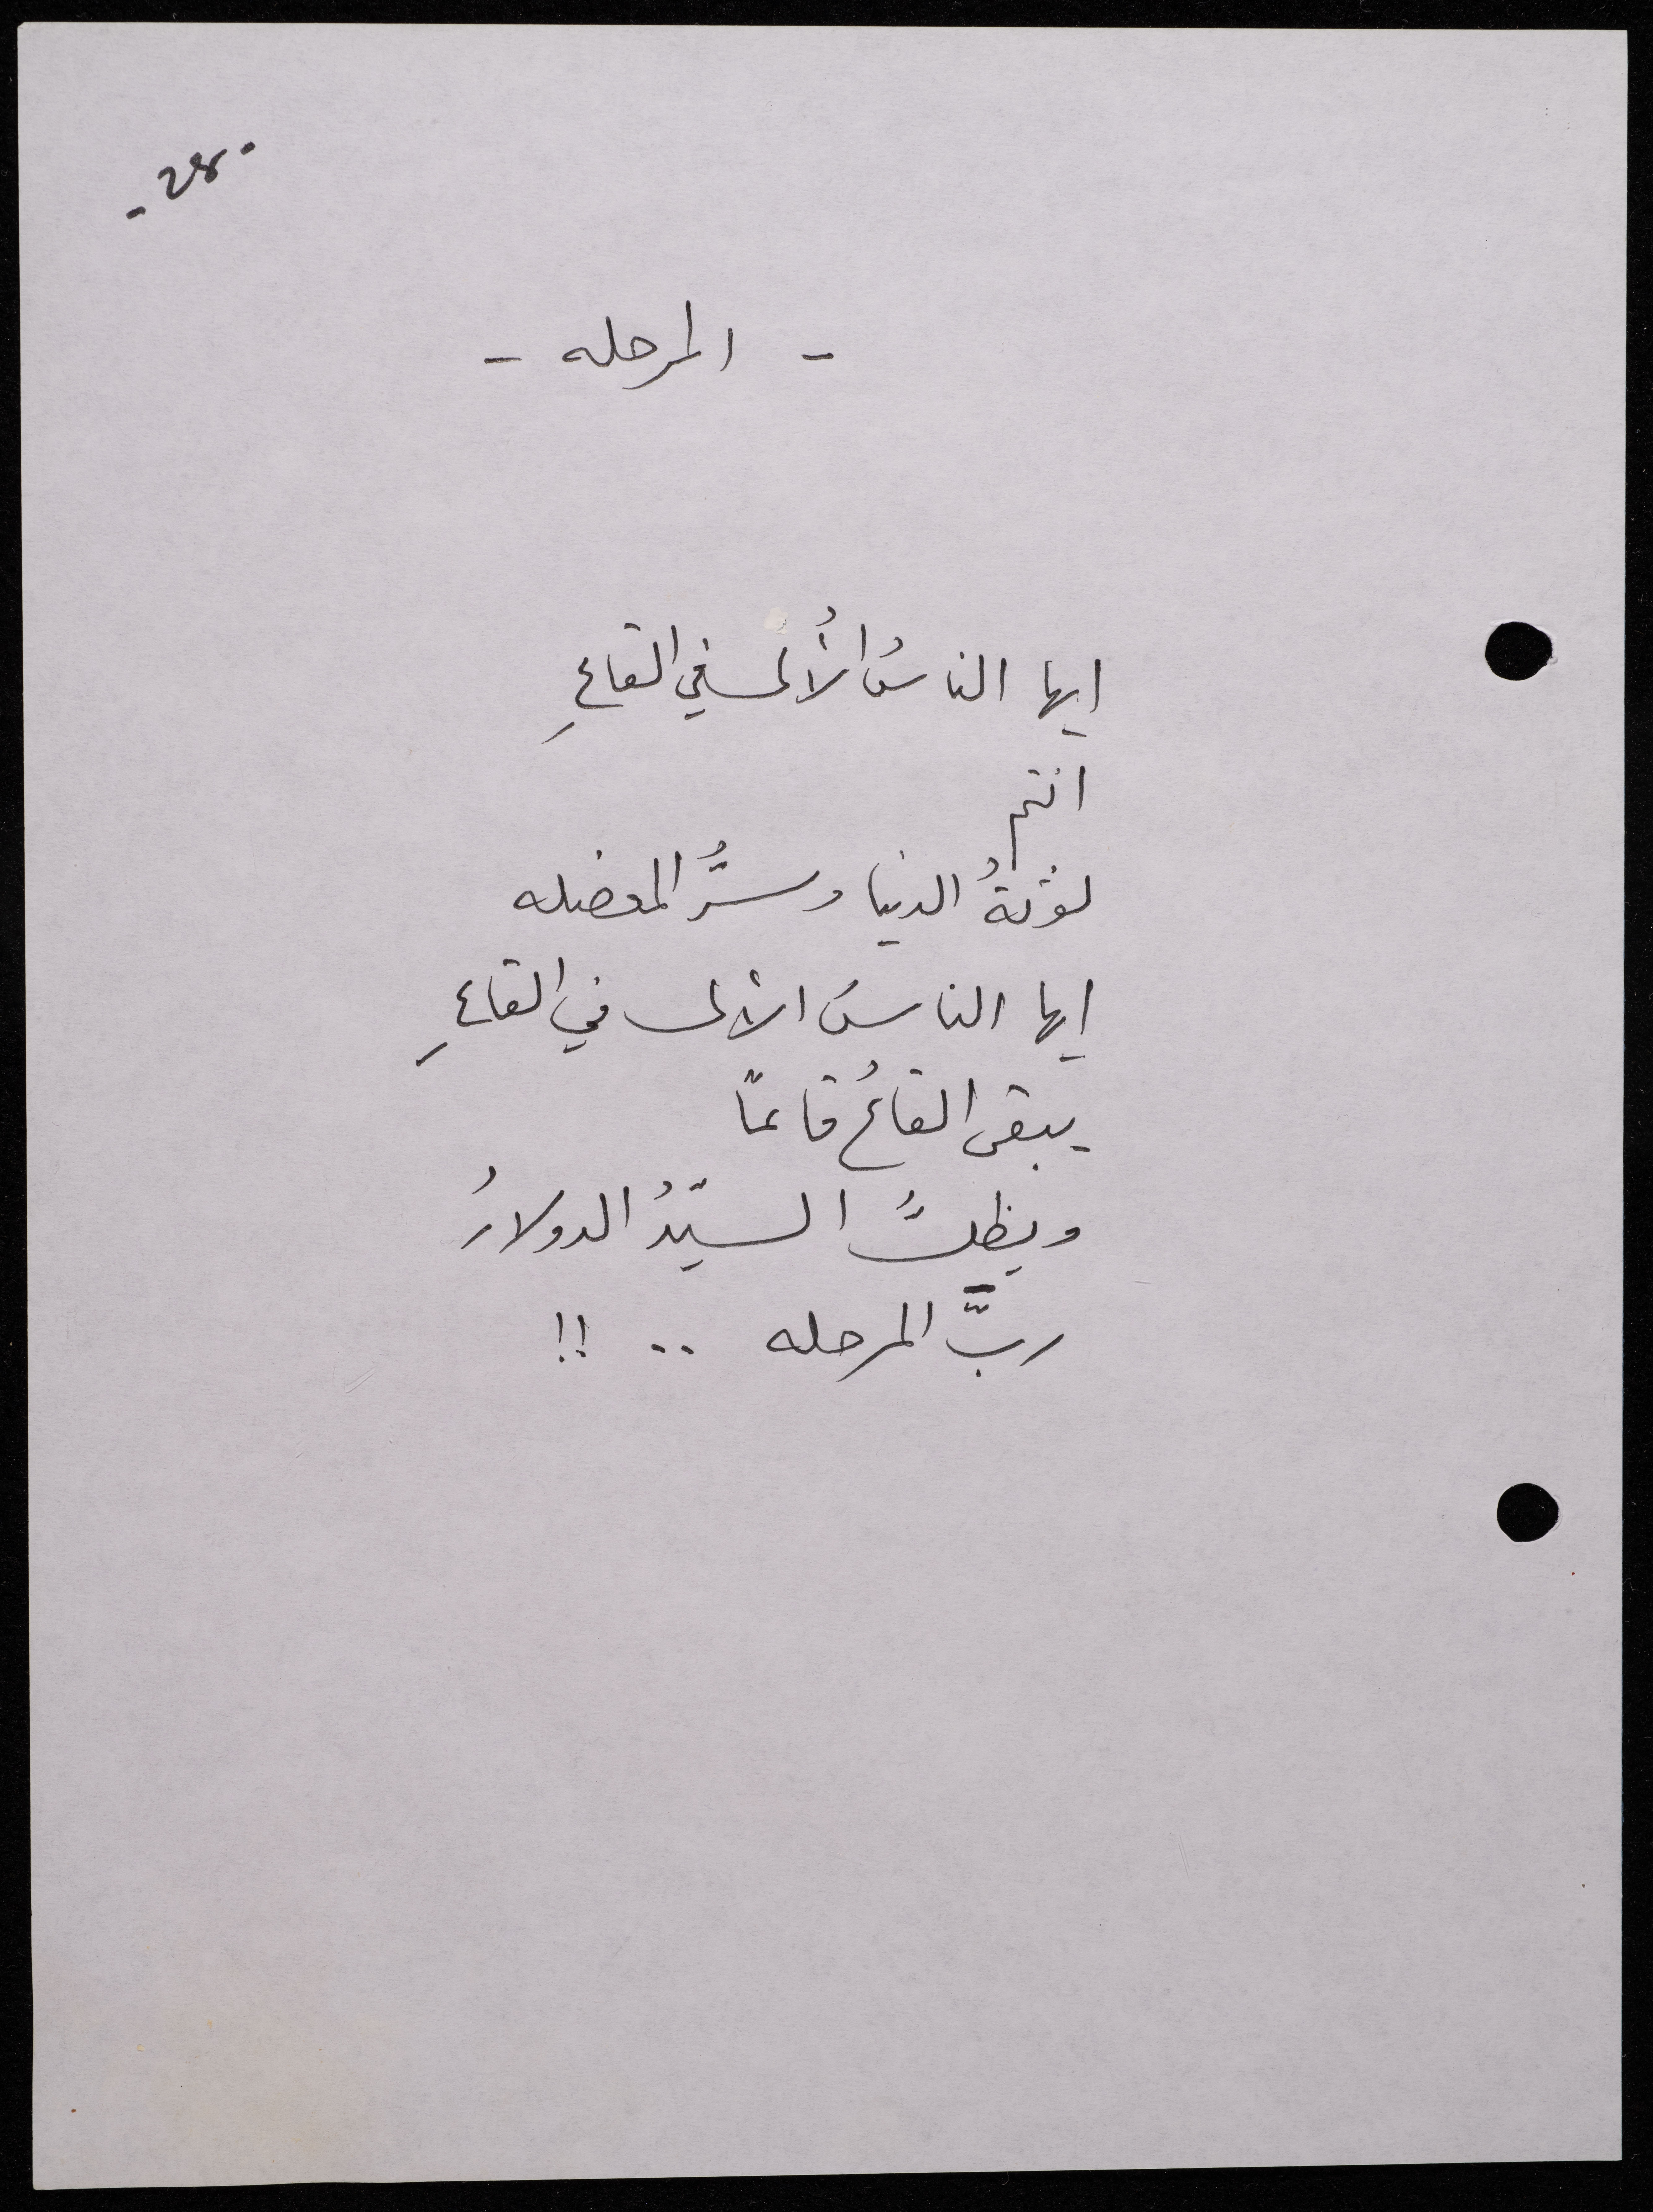 - 28 -
- المرحله -
ايها الناسُ الأُلى في القاعِ
انتم
لوثةُ الدنيا وسرُّ المعضله
ايها الناسُ الألى في القاعِ
يبقى القاعُ قاعًا
ويظلُّ السيّدُ الدولارُ
ربَّ المرحله .. !!